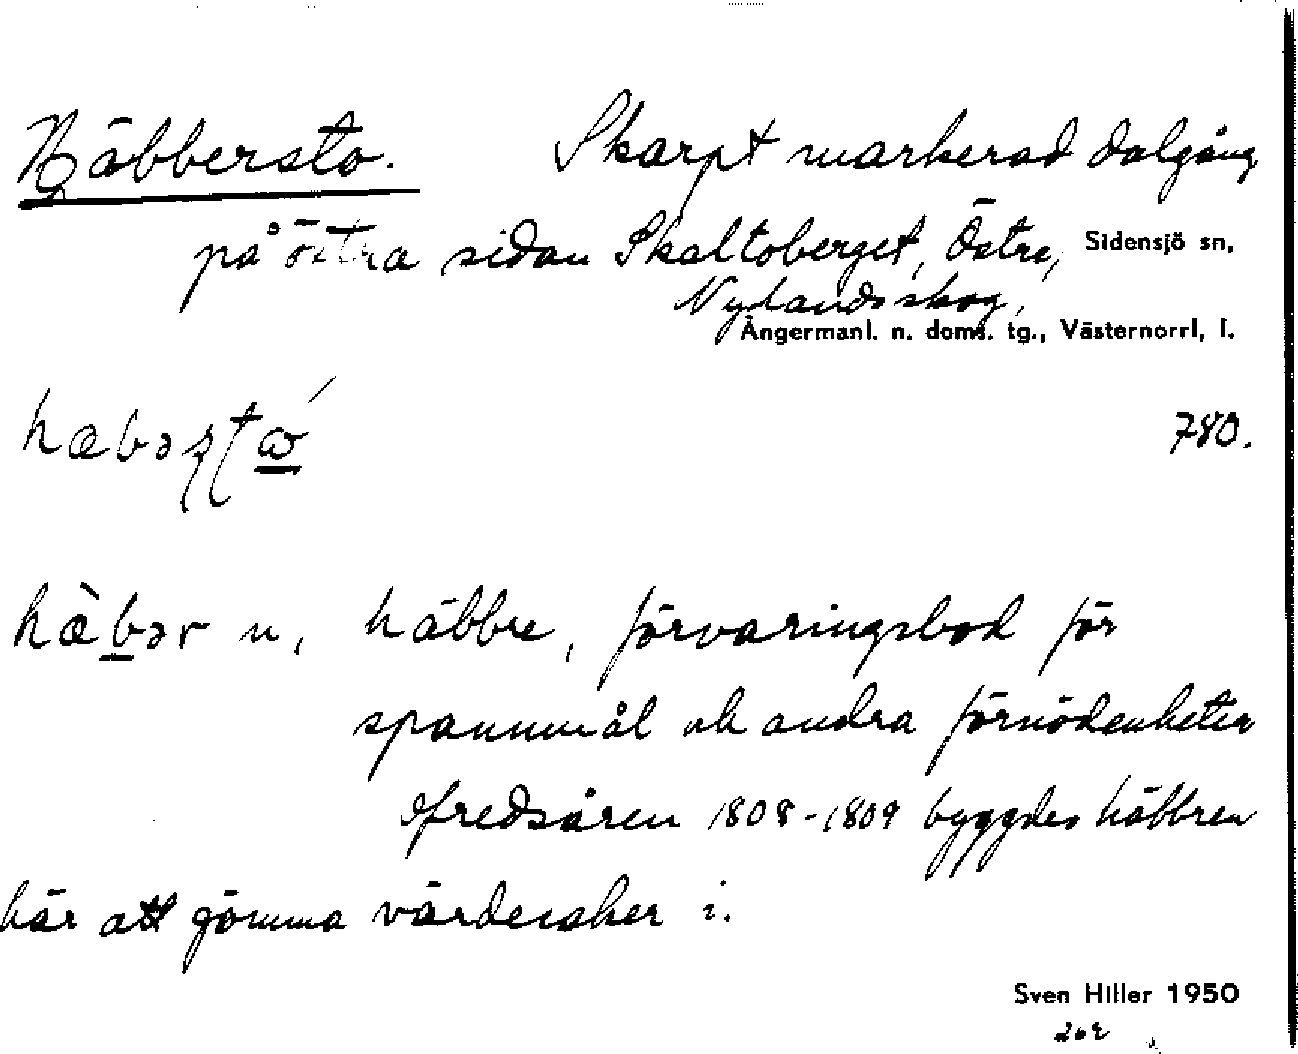 Häbbersto. Skarpt markerad dalgång
på östra sidan Skaltoberget, Östre, Sidensjö sn,
Nylandsskog,
Ångermanl. n. doms. tg., Västernorrl, l.
780.
hàbər n, häbbre, förvaringsbod för
spannmål och andra förnödenheter
Ofredsåren 1808-1809 byggdes häbbren
här att gömma värdesaker i.
Sven Hiller 1950